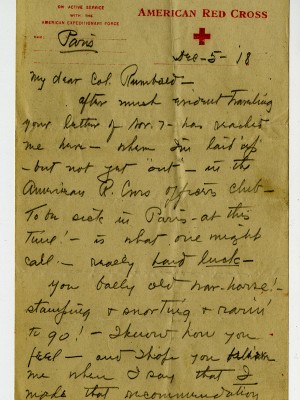 ON ACTIVE SERVICE
WITH THE
AMERICAN EXPEDITIONARY FORCE
AMERICAN RED CROSS
Paris
Dec - 5 - '18
My dear Col. Rumbold -
after much evident traveling
your letter of Nov. 7 - has reached
me here - when I'm laid up
- but not yet "out" - in the
American R. Cross officers club -
To be sick in Paris - at this
time! - is what one might
call - really hard luck -
you bally old war-horse! -
stamping & snorting & rarin'
to go! - I know how you
feel - and I hope you
me when I say that I
made that recommendation